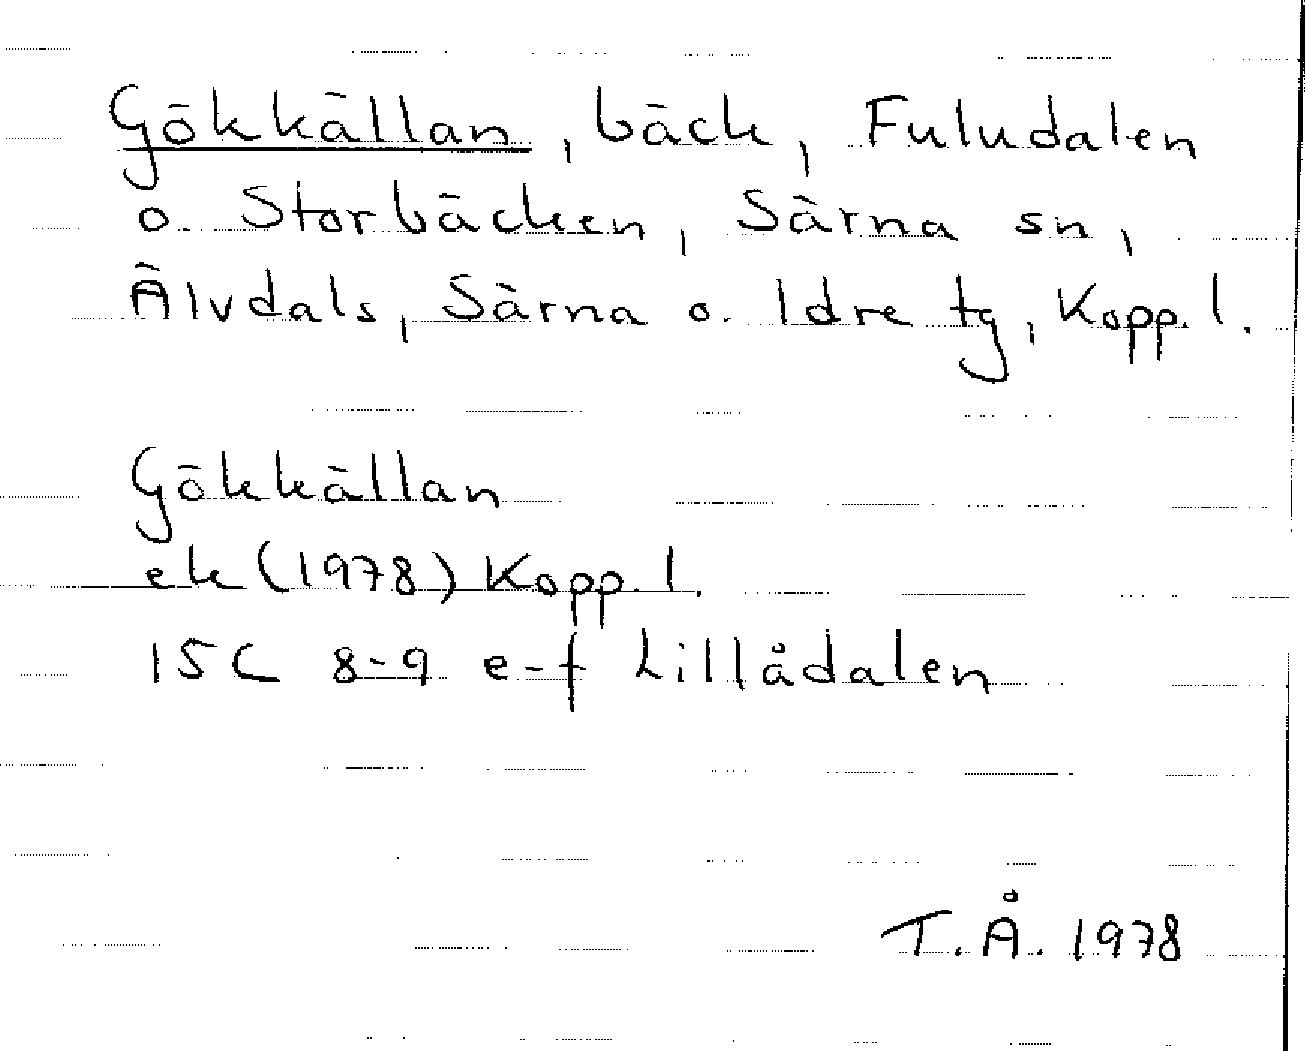 Gökkällan, bäck, Fuludalen
o. Storbäcken, Särna sn,
Älvdals, Särna o. Idre tg, Kopp. l.
Gökkällan
ek (1978) Kopp. l.
15C 8-9 e-f Lillådalen
T.Å. 1978